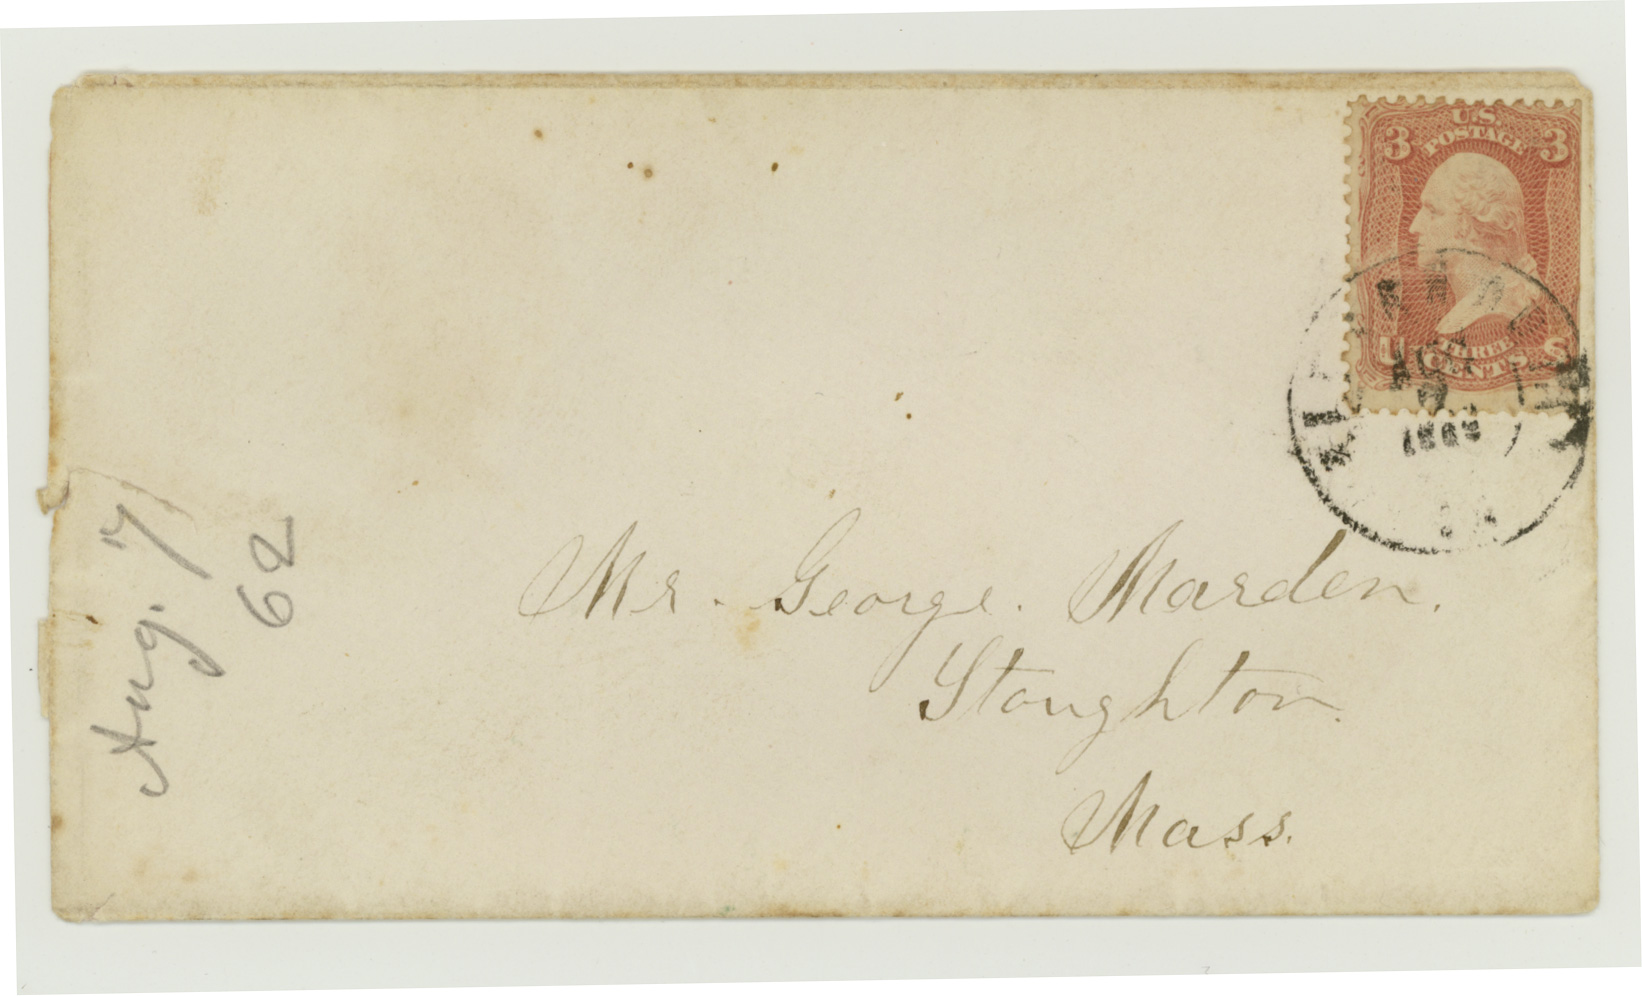 U.S.
POSTAGE
3 3
U THREE S
CENTS
Aug. 7
62
Mr. George. Marden.
Stoughton.
Mass.